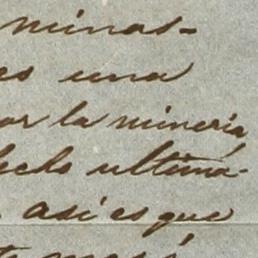 minas-
es una
or la minería
hecho ultima-
asi es que